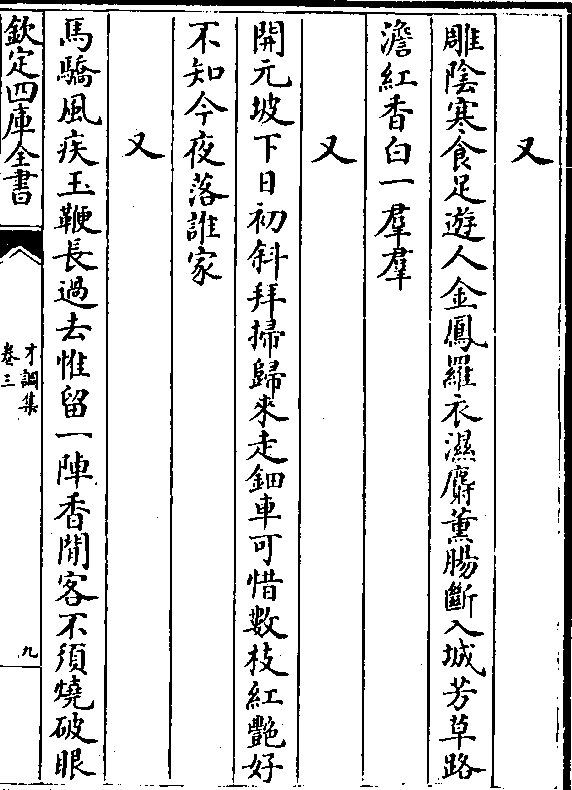 又
雕陰寒食足遊人金鳳羅衣濕麝薰腸斷入城芳草路
澹紅香白一羣羣
又
開元坡下日初斜拜掃歸來走鈿車可惜數枝紅艷好
不知今夜落誰家
又
馬驕風疾玉鞭長過去惟留一陣香閒客不須燒破眼
欽定四庫全書
才調集
卷三
九